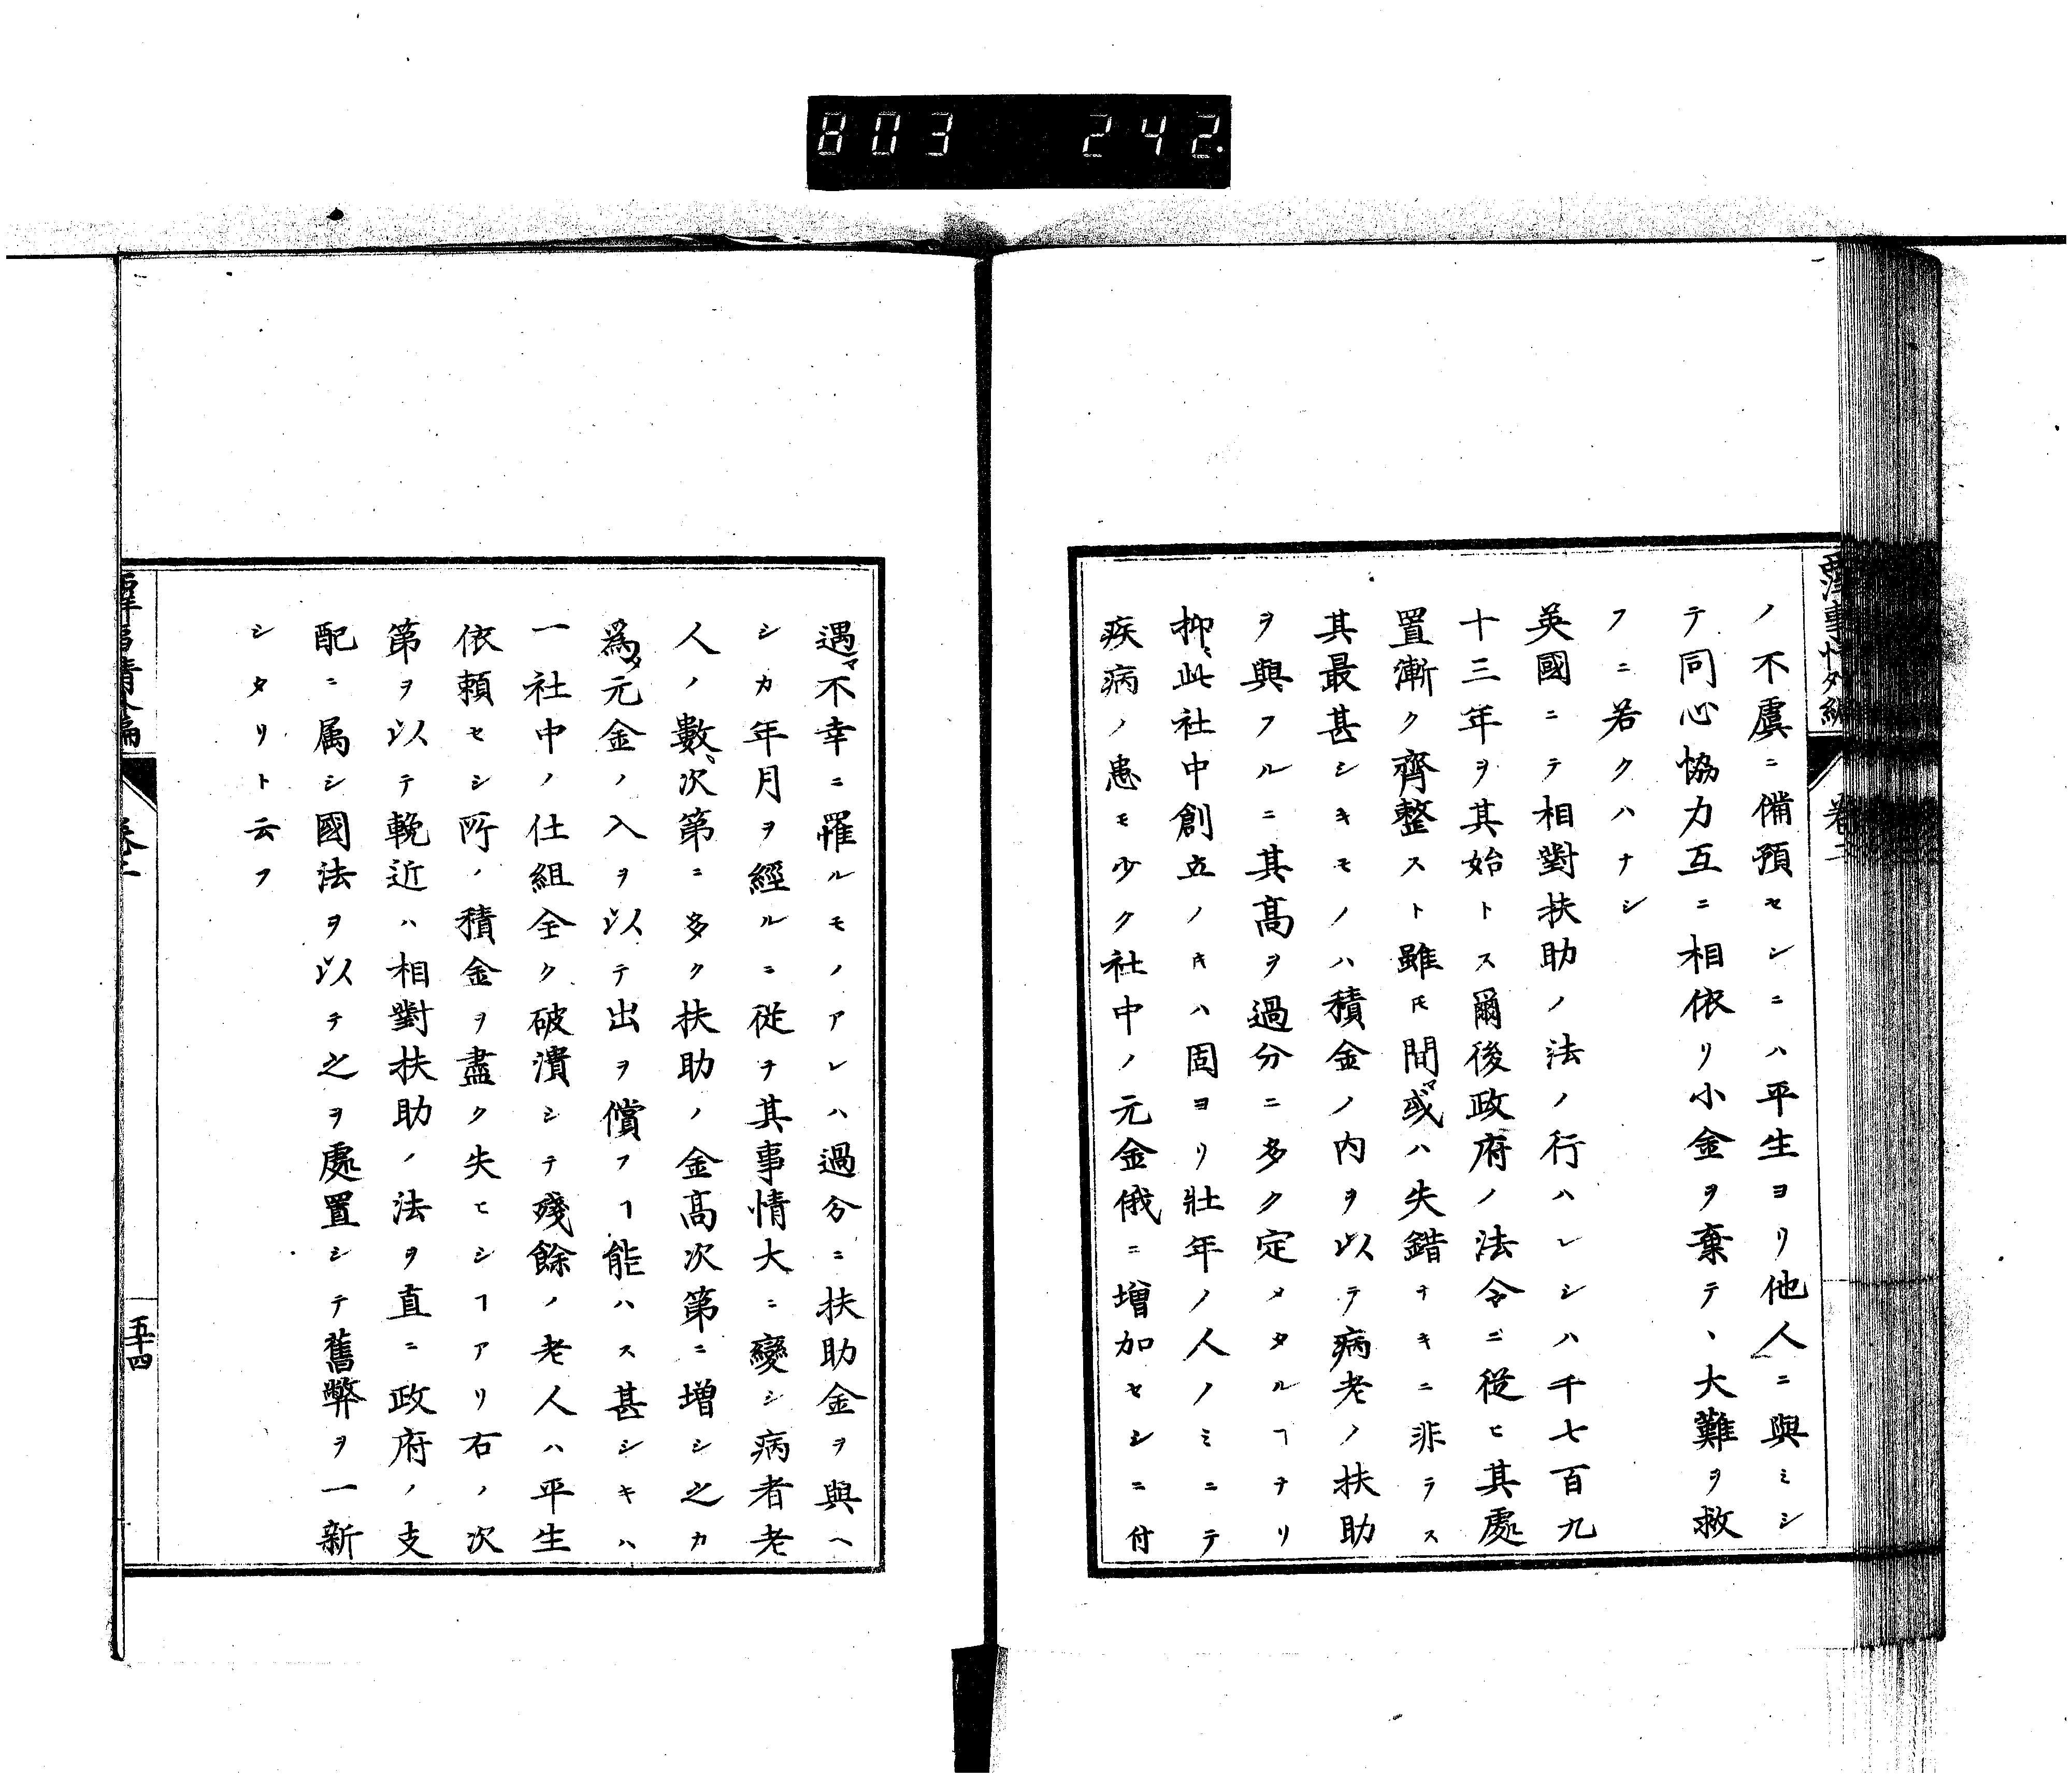 803 242.
西洋事情外編
卷二
ノ不虞ニ備預セシニハ平生ヨリ他人ニ與ミシ
テ同心協力互ニ相依リ小金ヲ棄テヽ大難ヲ救
フニ若クハナシ
英國ニテ相對扶助ノ法ノ行ハレシハ千七百九
十三年ヲ其始トス爾後政府ノ法令ニ從ヒ其處
置漸ク齊整スト雖𪜈間マ或ハ失錯ナキニ非ラス
其最甚シキモノハ積金ノ内ヲ以テ病老ノ扶助
ヲ與フルニ其高ヲ過分ニ多ク定メタルヿナリ
抑〻此社中創立ノキハ固ヨリ壯年ノ人ノミニテ
疾病ノ患モ少ク社中ノ元金俄ニ増加セシニ付
遇マ不幸ニ罹ルモノアレハ過分ニ扶助金ヲ與ヘ
シカ年月ヲ經ルニ從テ其事情大ニ變シ病者老
人ノ數〻次第ニ多ク扶助ノ金高次第ニ増シ之カ
爲タ元金ノ入ヲ以テ出ヲ償フヿ能ハス甚シキハ
一社中ノ仕組全ク破潰シテ殘餘ノ老人ハ平生
依頼セシ所ノ積金ヲ盡ク失ヒシヿアリ右ノ次
第ヲ以テ輓近ハ相對扶助ノ法ヲ直ニ政府ノ支
配ニ属シ國法ヲ以テ之ヲ處置シテ舊弊ヲ一新
シタリト云フ
西洋事情外編
卷二
五十四